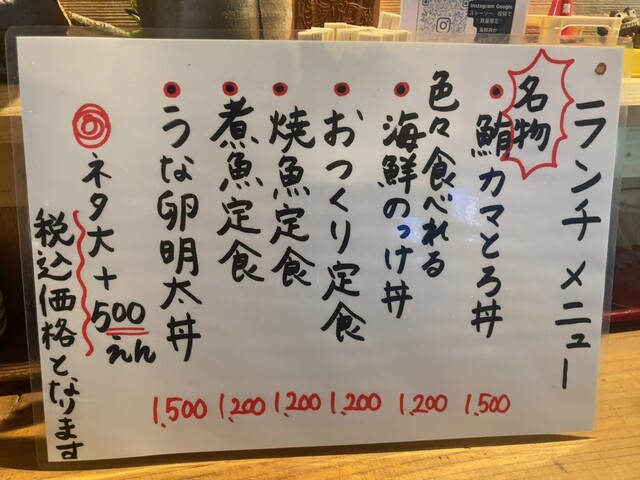 Instagram Google
ストーリー 投稿で
ランチメニュー
名物
鮪カマとろ丼
1,500
色々食べれる
海鮮のっけ丼
1,200
おつくり定食
1,200
焼魚定食
1,200
煮魚定食
1,200
うな卵明太丼
1,500
ネタ大+500えん
税込価格となります